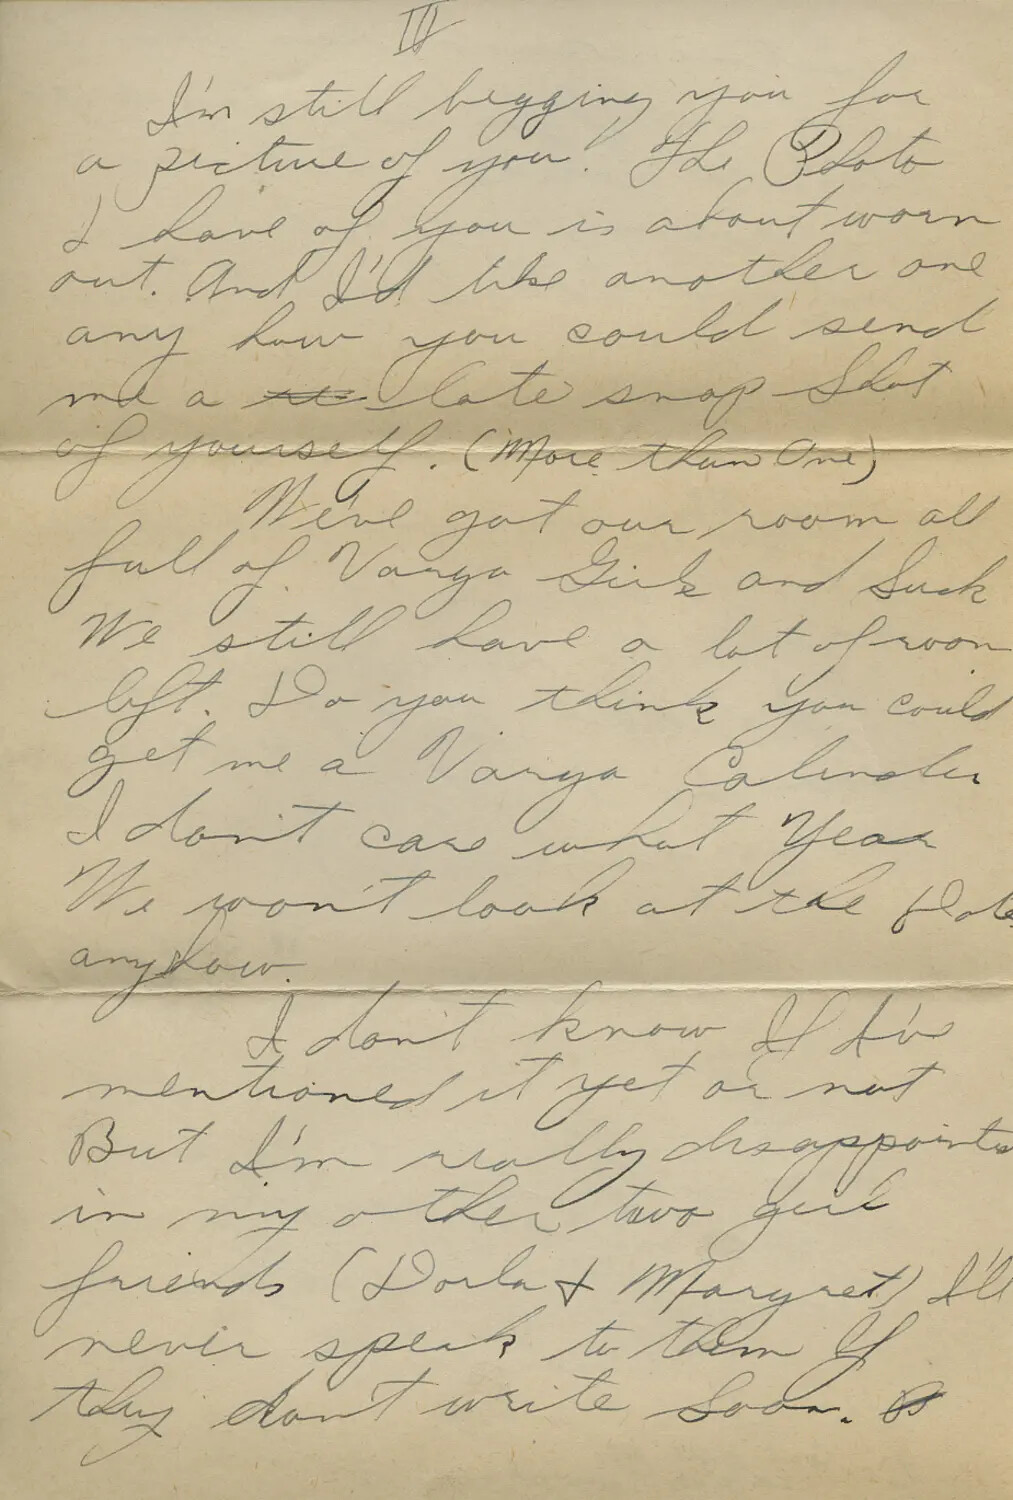 III
I'm still begging you for
a picture of you! The Photo
I have of you is about worn
out. And I'd like another one
any how you could send
me a late snap Shot
of yourself. (More than One)
We've got our room all
full of Varga Girls and Such
We still have a lot of room
left. Do you think you could
get me a Varga Calender
I don't care what Year
We won't look at the Date
anyhow.
I don't know If I've
mentioned it yet or not
But I'm really disappointed
in my other two girl
friends (Dorla & Margret) I'll
never speak to them If
they don't write Soon.